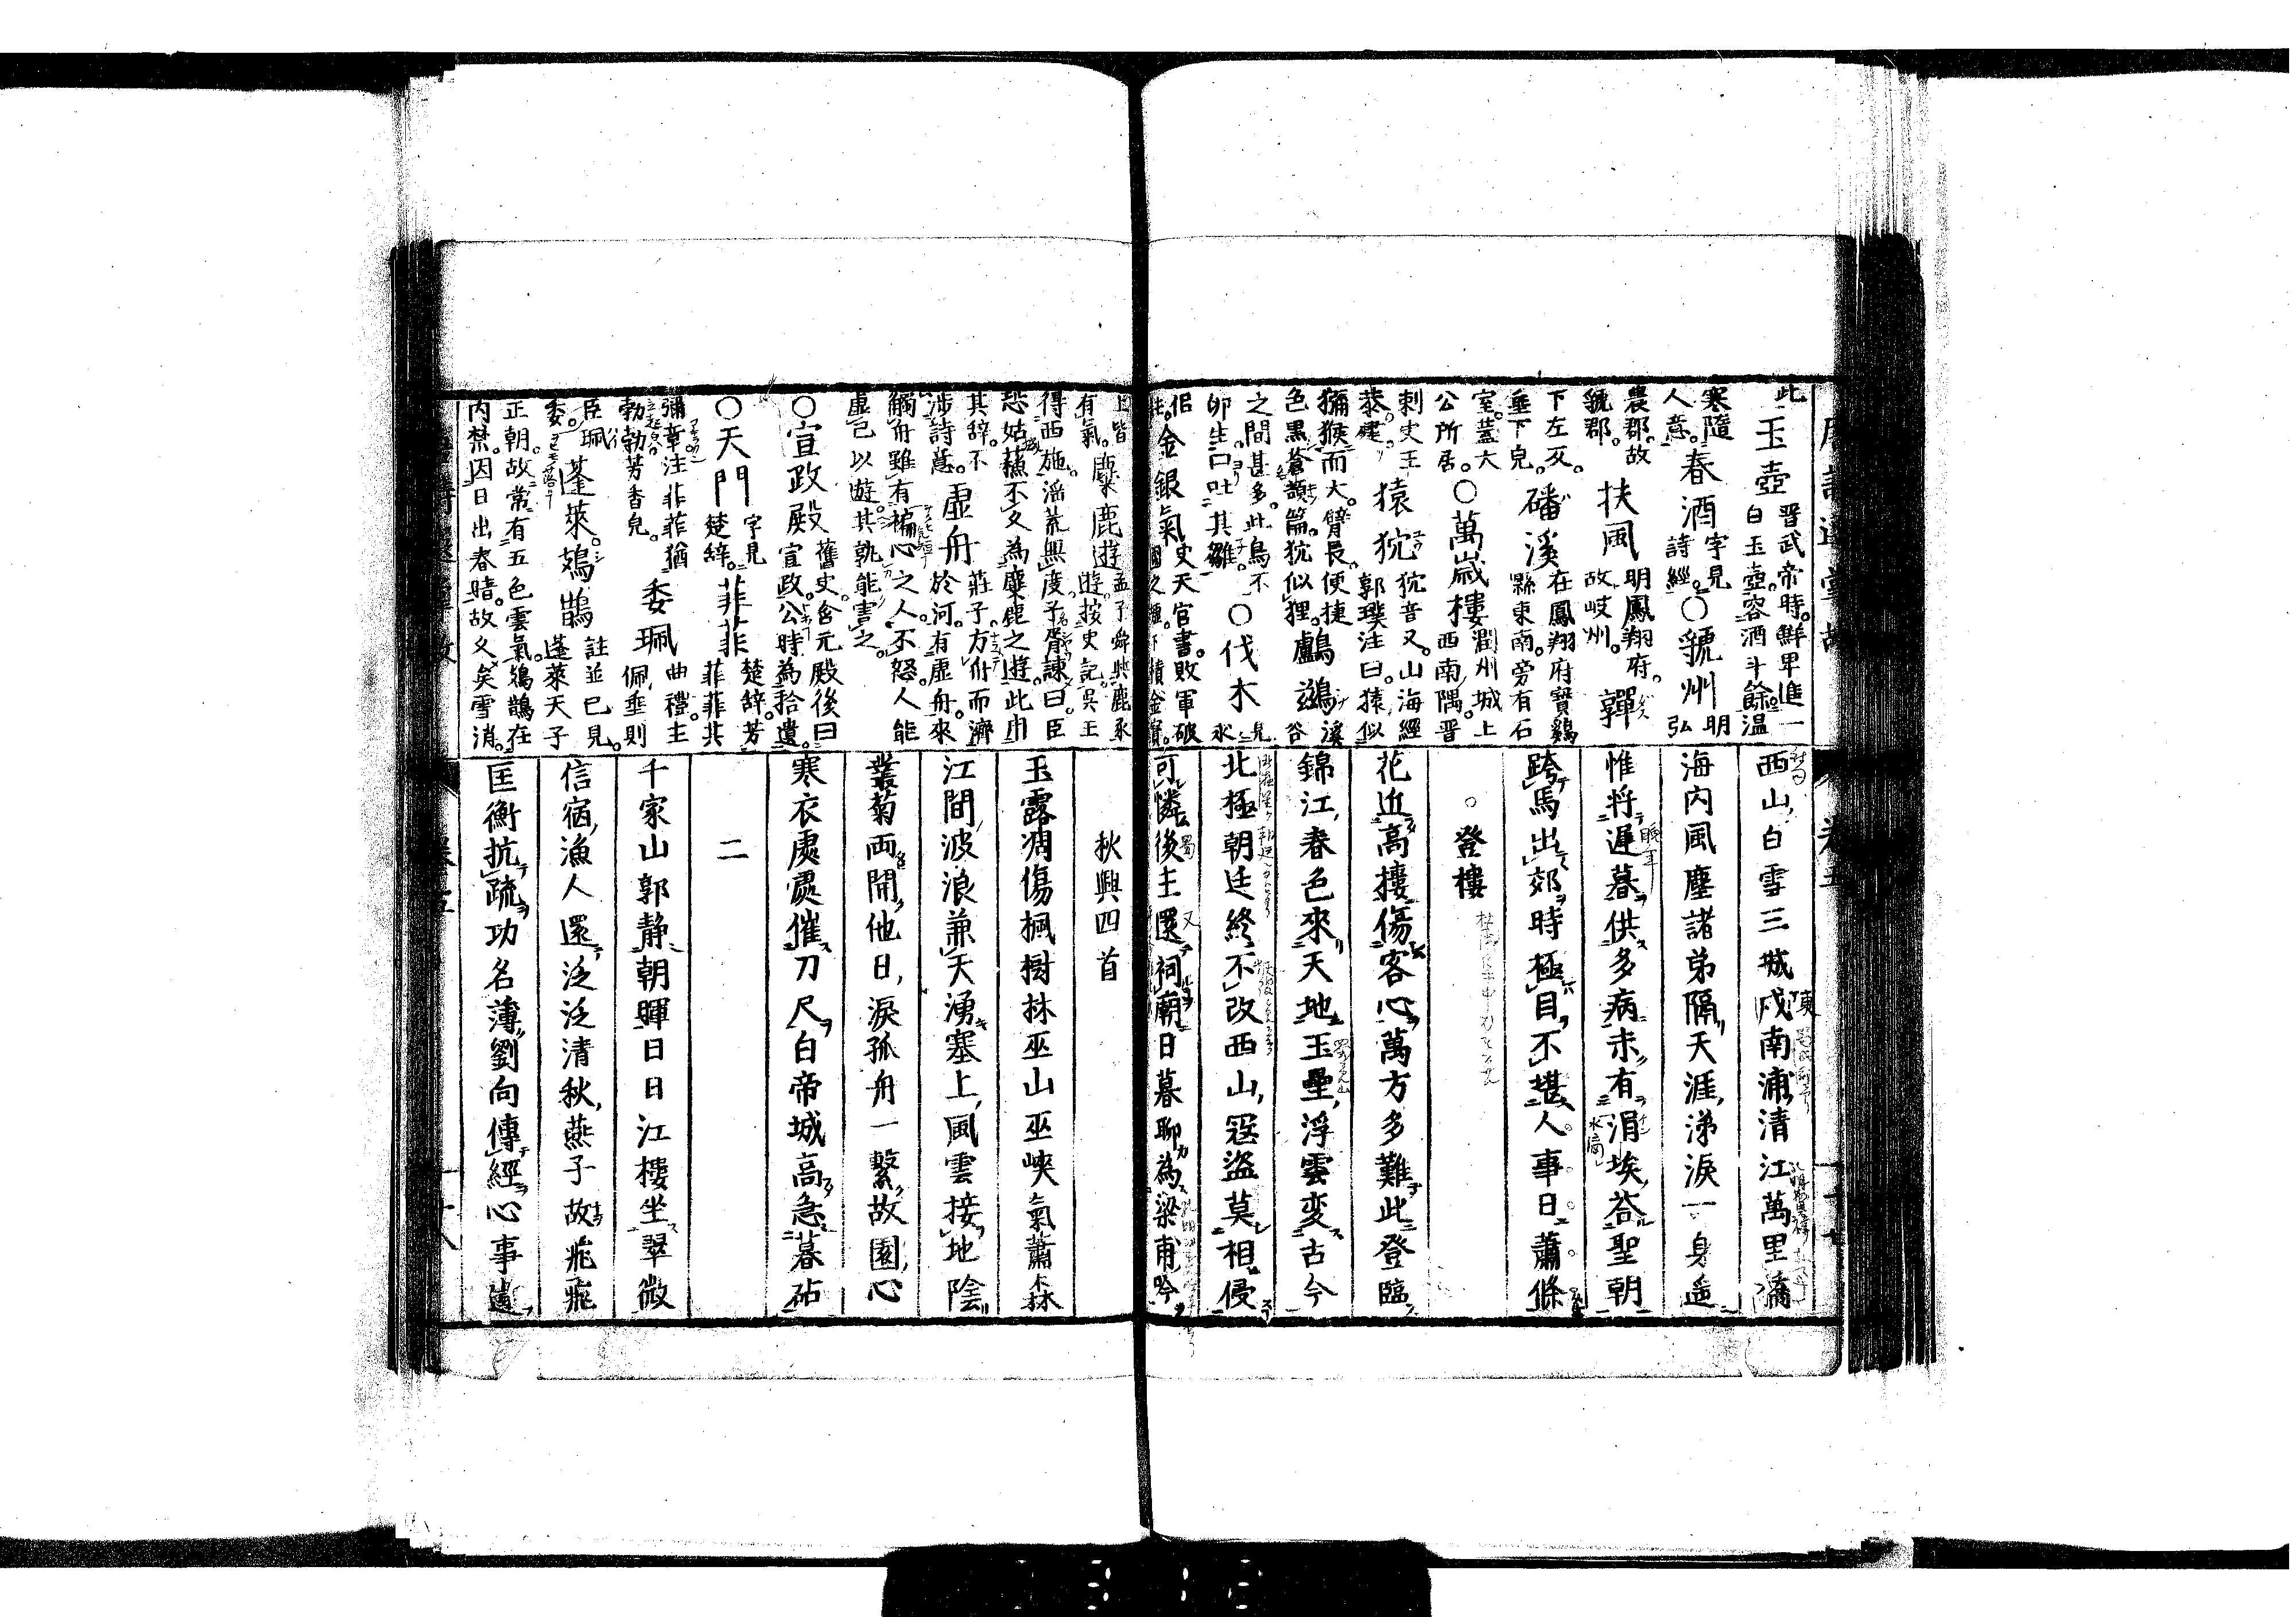 此
玉壺
晋武帝時。鮮卑進一
白玉壺。容酒斗餘。温
寒隨
人意。
春酒
字見
詩經。
○虢州
明
弘
農郡。故
虢郡。
扶風
明鳳翔府。
故岐州。
下左又。
垂下皃。
磻溪
在鳳翔府寳鷄
縣東南。旁有石
室。蓋太
公所居。
○萬歳樓
潤州城上
西南隅。晋
刺史王
恭建。
猿狖
狖音又。山海經
郭璞注曰。猿似
獼猴而大。臂長。便捷
色黒。蒼頡篇。狖似狸。
鸕鷀
溪
谷
之間甚多。此鳥不
卵生。口吐其雛。
○伐木
見
永
侶
注。
金銀氣
史天官書。敗軍破
國之墟。下積金寳。
西山白雪三城戍南浦清江萬里橋
海内風塵諸弟隔天涯涕淚一身遥
惟将遲暮供多病未有涓埃荅聖朝
跨馬出郊時極目不堪人事日蕭條
○登樓
花近高樓傷客心萬方多難此登臨
錦江春色來天地玉壘浮雲変古今
北極朝廷終不改西山寇盗莫相侵
可憐後主還祠廟日暮聊為梁甫吟
上皆
有氣。
麋鹿遊
孟子舜與鹿豕
遊。按史記。吳王
得西施。滛荒無度。子胥諫曰。臣
恐姑蘓不久為麋鹿之遊。此巾
其辞。不
渉詩意。
虚舟
莊子。方舟而濟
於河。有虚舟。來
觸舟。雖有褊心之人。不怒。人能
虚己以遊。其孰能害之。
○宣政殿
舊史。含元殿後曰
宣政。公時為拾遺。
○天門
字見
楚辞。
菲菲
楚辞。芳
菲菲其
彌章注菲菲猶
勃勃芳香皃。
委珮
曲禮。主
佩垂則
臣珮
委。
蓬萊。鳷鵲
註並已見。
蓬萊天子
正朝。故常有五色雲氣。鳷鵲在
内禁。因日出春暗。故久矣雪消。
秋興四首
玉露凋傷楓樹林巫山巫峽氣蕭森
江間波浪兼天湧塞上風雲接地陰
叢菊両開他日淚孤舟一繫故園心
寒衣處處催刀尺白帝城高急暮砧
二
千家山郭静朝暉日日江樓坐翠微
信宿漁人還泛泛清秋燕子故飛飛
匡衡抗疏功名薄劉向傳經心事違